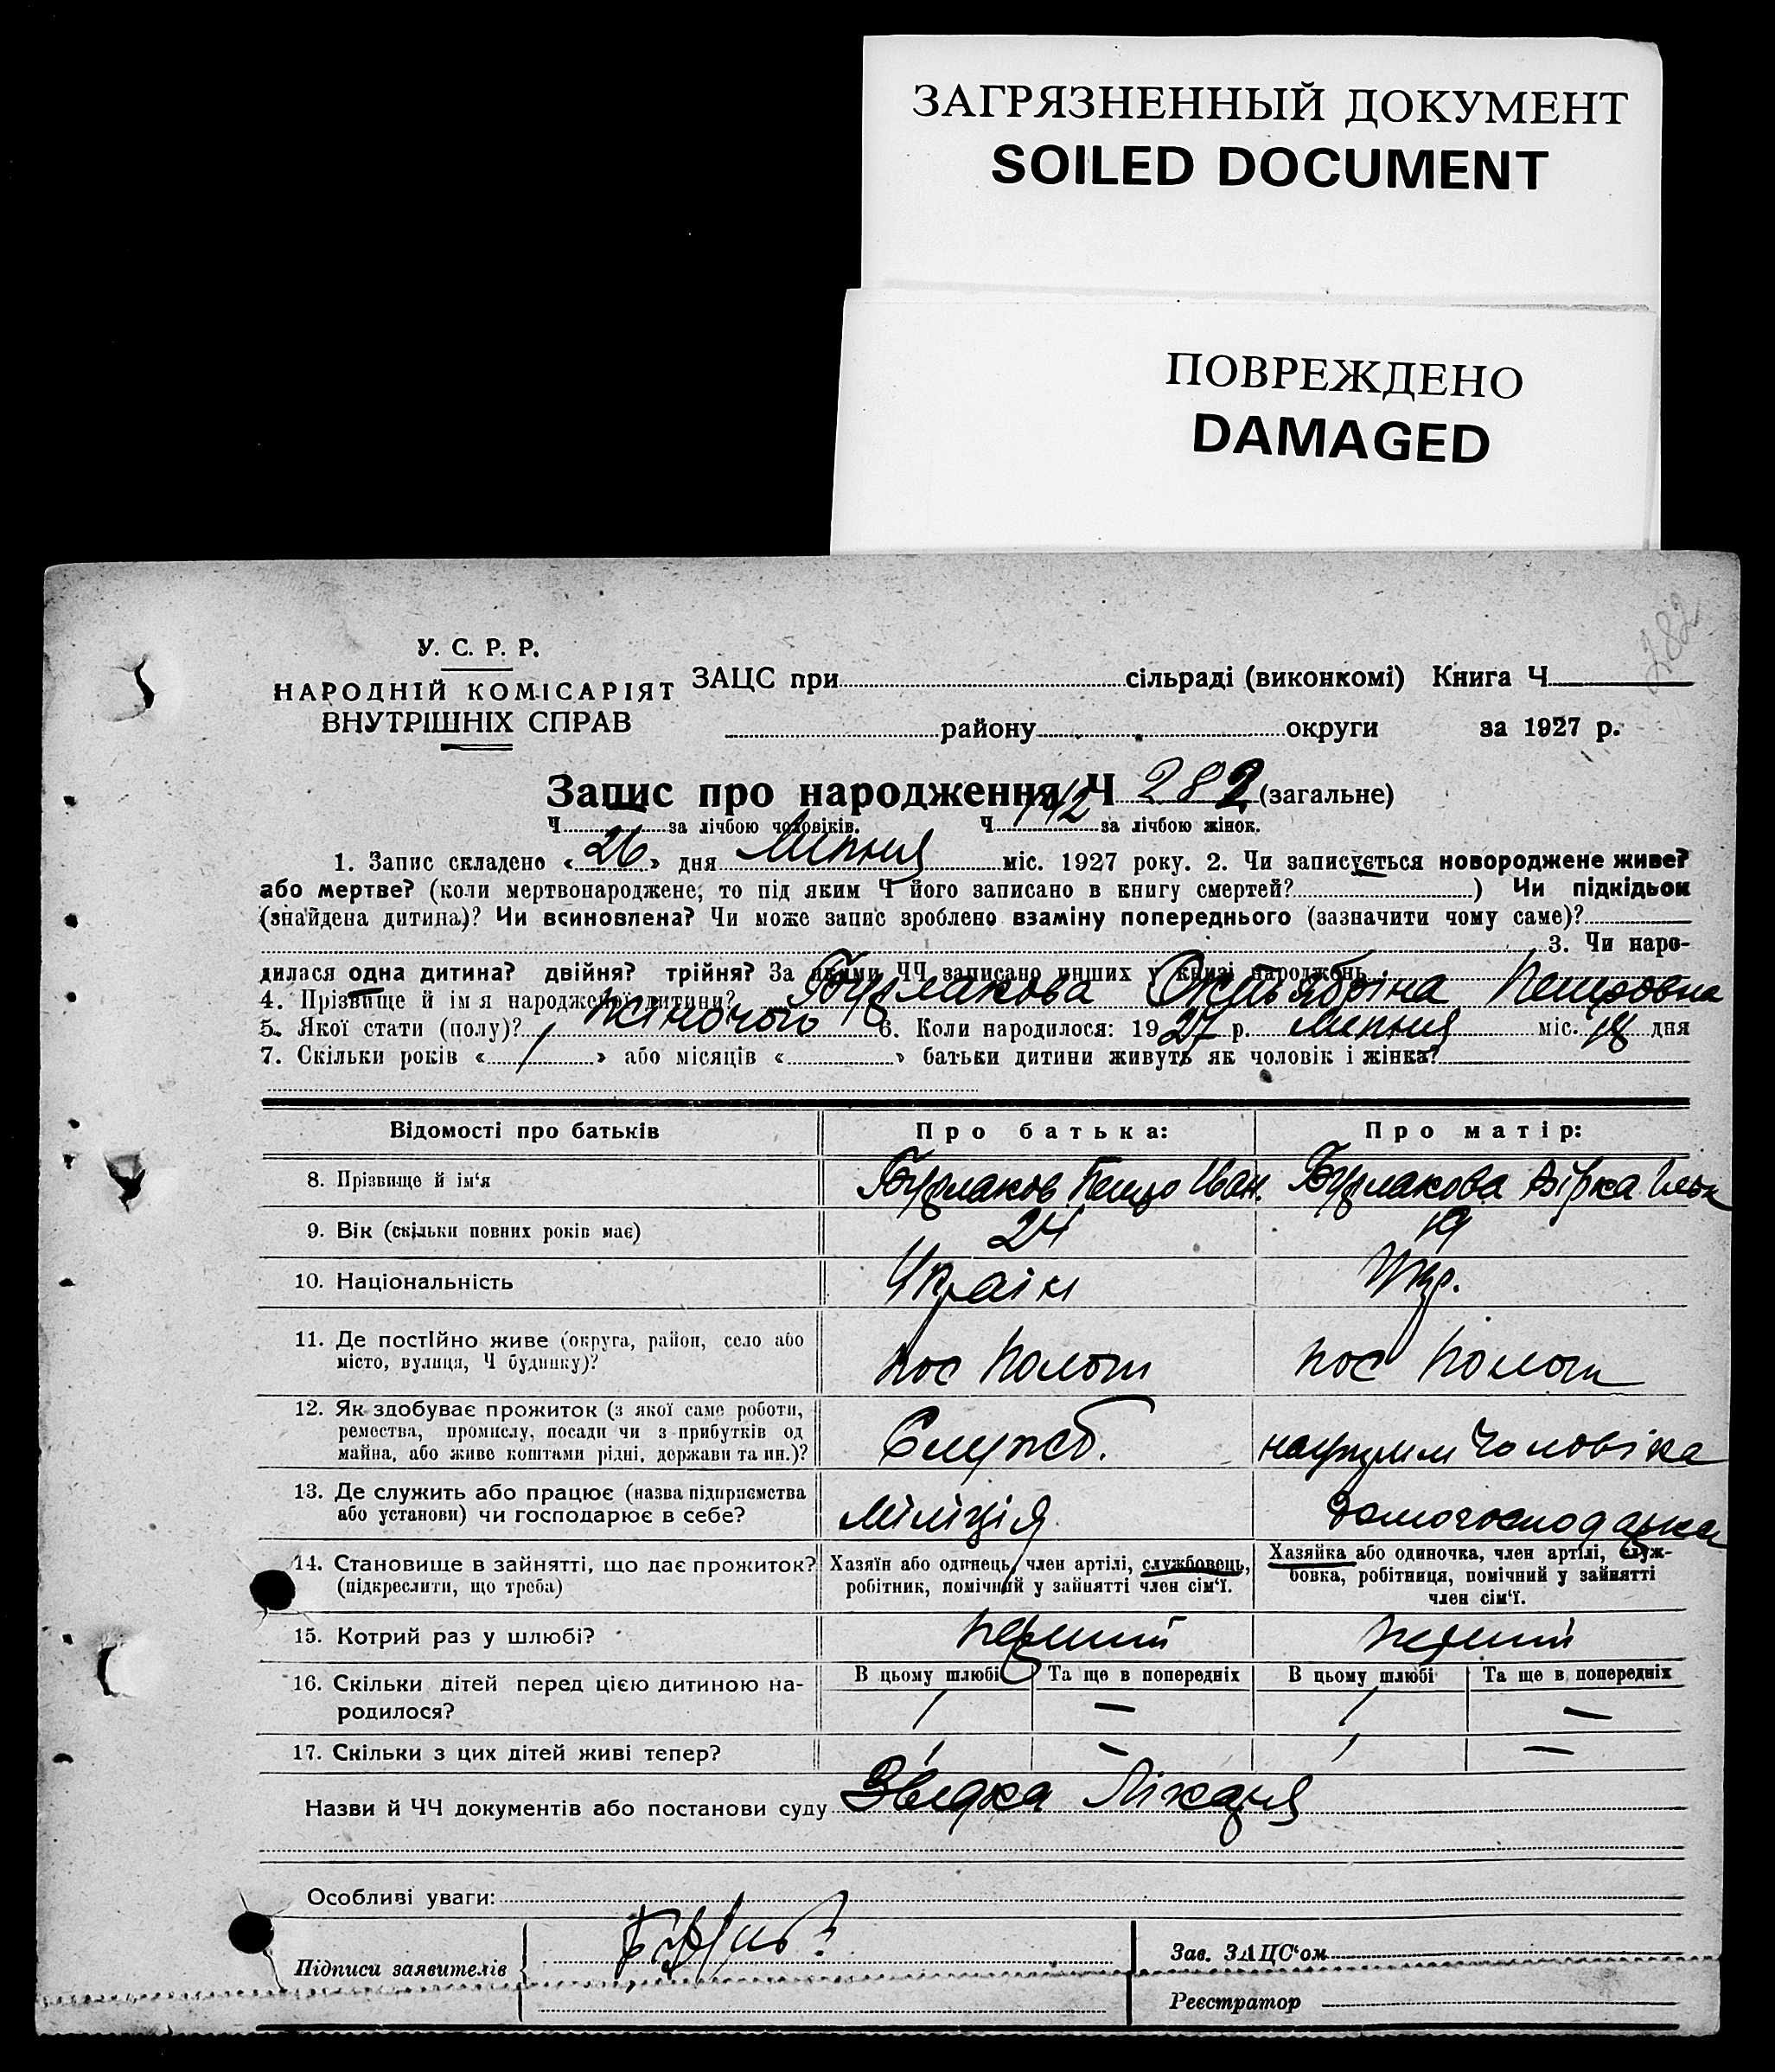 ЗАГРЯЗНЕННЫЙ ДОКУМЕНТ
SOILED DOCUMENT
ПОВРЕЖДЕНО
DAMAGED
282
У. С. Р. Р.
НАРОДНІЙ КОМІСАРІЯТ
ВНУТРІШНІХ СПРАВ
ЗАЦС при сільраді (виконкомі) Книга Ч
району округи за 1927 р.
Запис про народження Ч 282 (загальне)
Ч за лічбою чоловіків. Ч 142 за лічбою жінок.
1. Запис складено « 26 » дня Липня міс. 1927 року. 2. Чи записується новороджене живе?
або мертве? (коли мертвонароджене, то під яким Ч його записано в книгу смертей? ) Чи підкідьок
(знайдена дитина)? Чи всиновлена? Чи може запис зроблено взаміну попереднього (зазначити чому саме)?
3. Чи наро-
дилася одна дитина? двійня? трійня? За якими ЧЧ записано инших у книзі народжень
4. Прізвище й ім'я народженої дитини? Бурлакова Октябріна Петровна
5. Якої стати (полу)? Жіночого 6. Коли народилося: 1927 р. Липня міс. 18 дня
7. Скільки років « / » або місяців « » батьки дитини живуть як чоловік і жінка?
Відомості про батьків Про батька: Про матір:
8. Прізвище й ім'я Бурлаков Іван. Бурлакова Вірка
9. Вік (скільки повних років має) 24 19
10. Національність Україн Укр.
11. Де постійно живе (округа, район, село або пос Полог пос Полог
місто, вулиця, Ч будинку)?
12. Як здобуває прожиток (з якої саме роботи,
ремества, промислу, посади чи з прибутків од Служб. чоловіка
майна, або живе коштами рідні, держави та ин.)?
13. Де служить або працює (назва підприємства Міліція домогосподарка
або установи) чи господарює в себе?
14. Становище в зайнятті, що дає прожиток? Хазяїн або одинець, член артілі, службовець, Хазяйка або одиночка, член артілі, служ-
(підкреслити, що треба) робітник, помічний у зайнятті член сім'ї. бовка, робітниця, помічний у зайнятті
член сім'ї.
15. Котрий раз у шлюбі? перший перший
16. Скільки дітей перед цією дитиною на- В цьому шлюбі Та ще в попередніх В цьому шлюбі Та ще в попередніх
родилося? 1 — 1 —
17. Скільки з цих дітей живі тепер? 1 — 1 —
Назви й ЧЧ документів або постанови суду Звідка Лікаря
Особливі уваги:
Підписи заявителів Зав. ЗАЦС'ом
Реєстратор